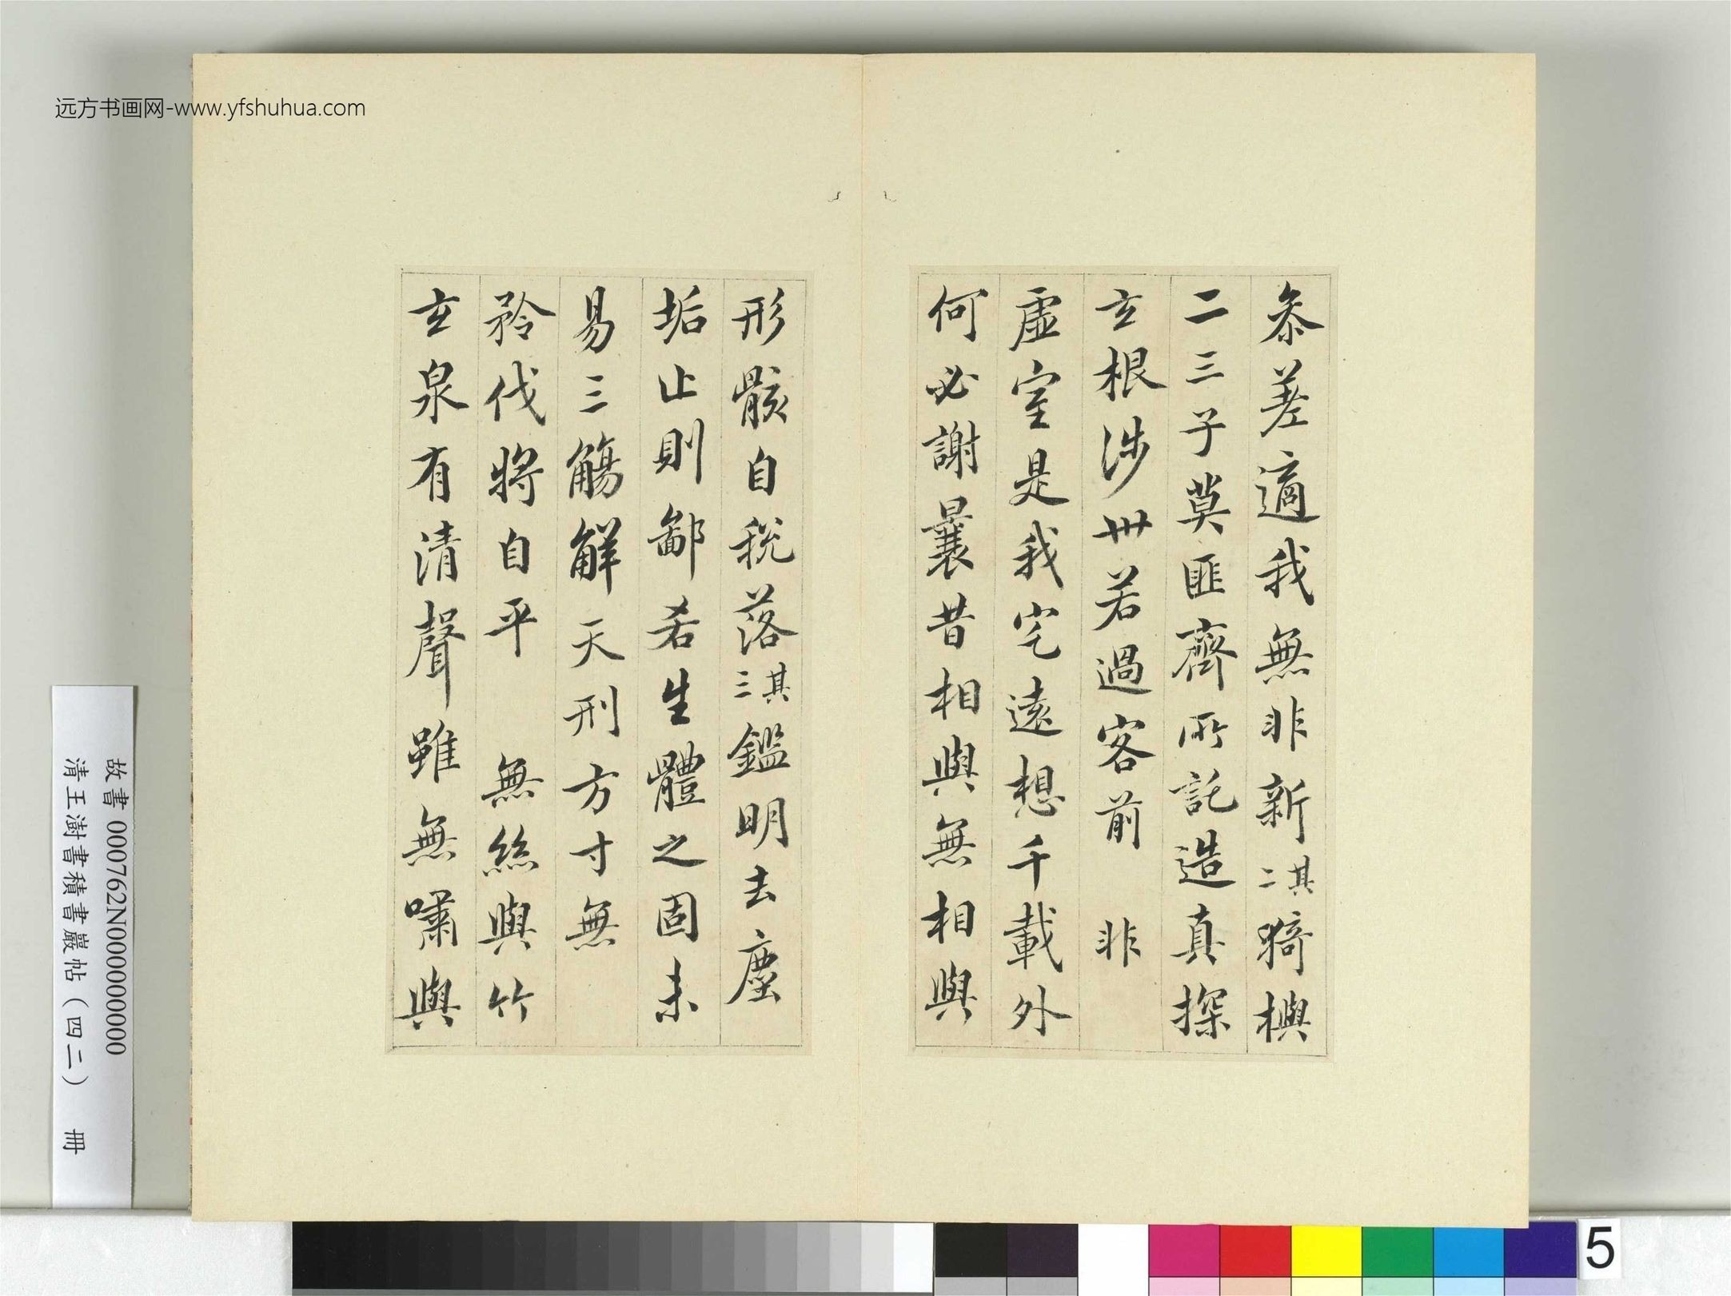 远方书画网-www.yfshuhua.com
叅差適我無非新其二猗㰒
二三子莫匪齊所託造真探
玄根涉卅若過客前 非
虛室是我宅遠想千載外
何必謝曩昔相與無相與
形骸自稅落其三鑑明去塵
垢止則鄙吝生體之固未
易三觴解天刑方寸無
矜伐將自平 無絲與竹
玄泉有清聲雖無嘯與
故書 000762N000000000
清王澍書積書巖帖（四二） 冊
5